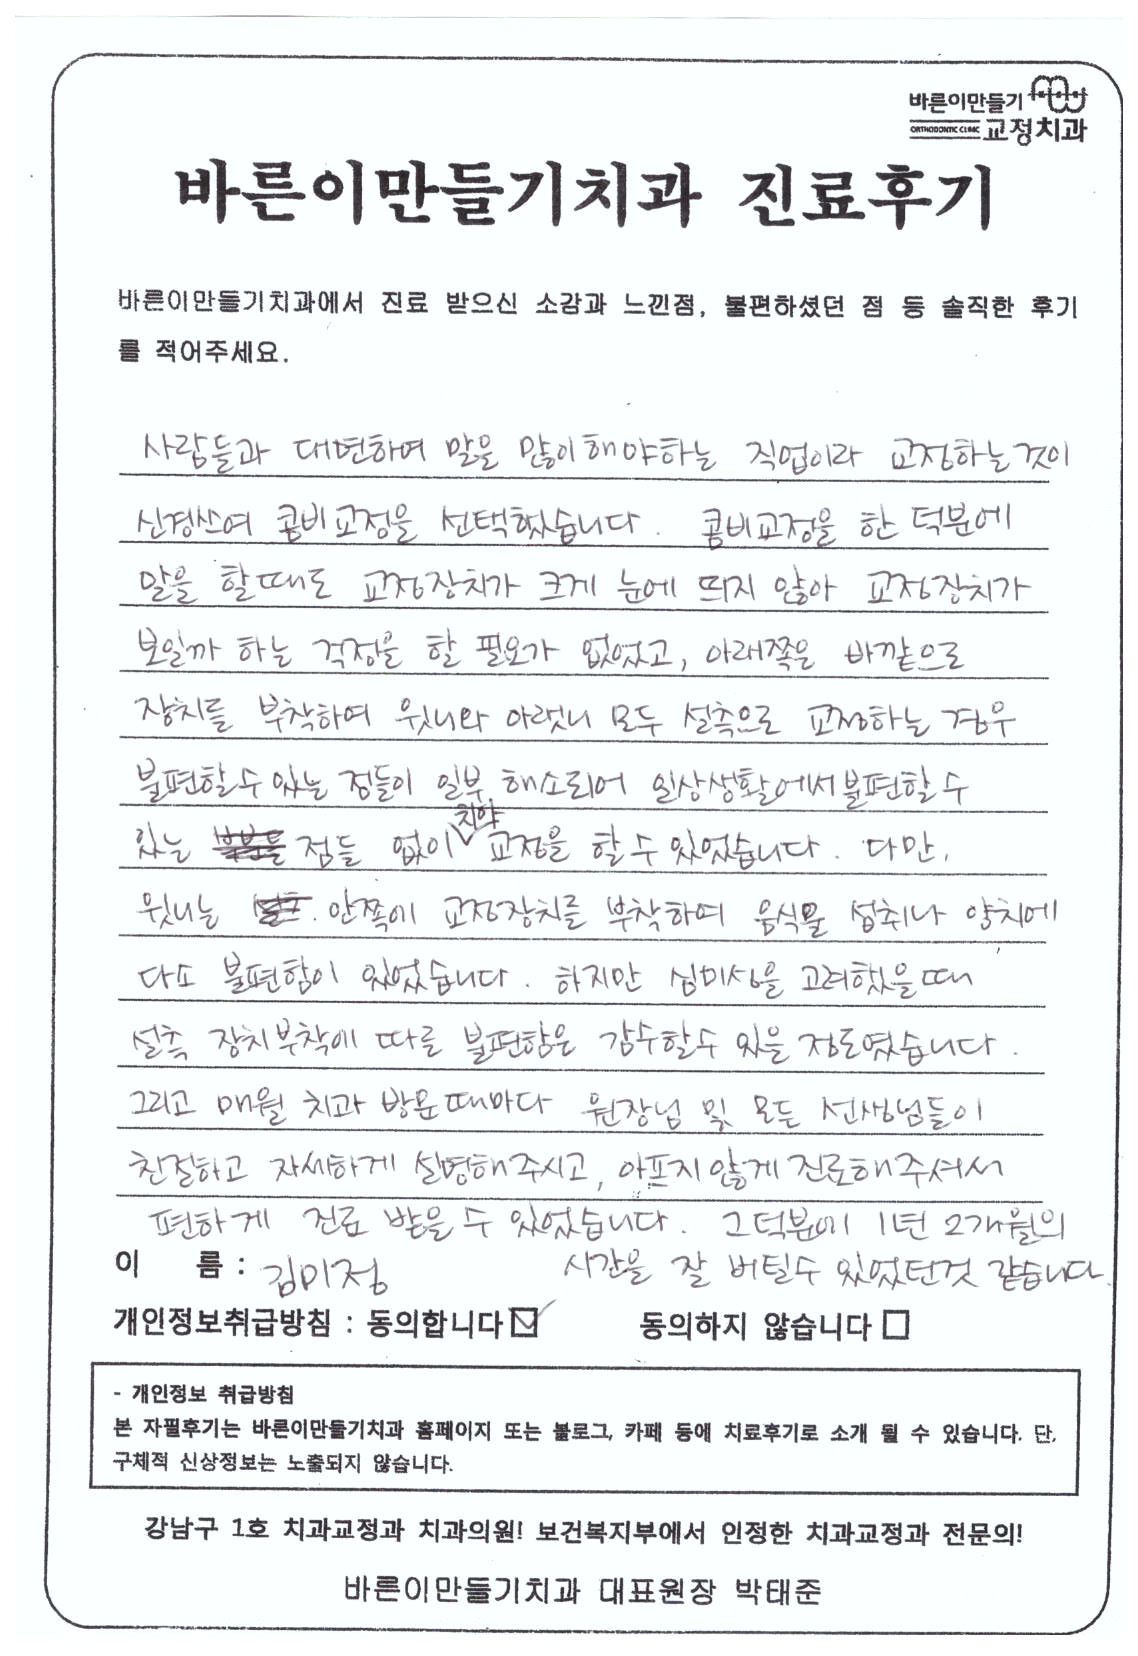 바른이만들기
ORTHODONTIC CLINIC 교정치과
바른이만들기치과 진료후기
바른이만들기치과에서 진료 받으신 소감과 느낀점, 불편하셨던 점 등 솔직한 후기
를 적어주세요.
사람들과 대면하여 말을 많이해야하는 직업이라 교정하는것이
신경쓰여 콤비교정을 선택했습니다. 콤비교정을 한 덕분에
말을 할때도 교정장치가 크게 눈에 띄지 않아 교정장치가
보일까 하는 걱정을 할 필요가 없었고, 아래쪽은 바깥으로
장치를 부착하여 윗니와 아랫니 모두 설측으로 교정하는 경우
불편할수 있는 점들이 일부 해소되어 일상생활에서 불편할 수
있는 점들 없이 치아 교정을 할 수 있었습니다. 다만,
윗니는 안쪽에 교정장치를 부착하여 음식물 섭취나 양치에
다소 불편함이 있었습니다. 하지만 심미성을 고려했을때
설측 장치부착에 따른 불편함은 감수할수 있을 정도였습니다.
그리고 매월 치과 방문때마다 원장님 및 모든 선생님들이
친절하고 자세하게 설명해주시고, 아프지않게 진료해주셔서
편하게 진료 받을 수 있었습니다. 그덕분에 1년 2개월의
시간을 잘 버틸수 있었던것 같습니다.
이 름 : 김미정
개인정보취급방침 : 동의합니다☑ 동의하지 않습니다☐
- 개인정보 취급방침
본 자필후기는 바른이만들기치과 홈페이지 또는 블로그, 카페 등에 치료후기로 소개 될 수 있습니다. 단,
구체적 신상정보는 노출되지 않습니다.
강남구 1호 치과교정과 치과의원! 보건복지부에서 인정한 치과교정과 전문의!
바른이만들기치과 대표원장 박태준